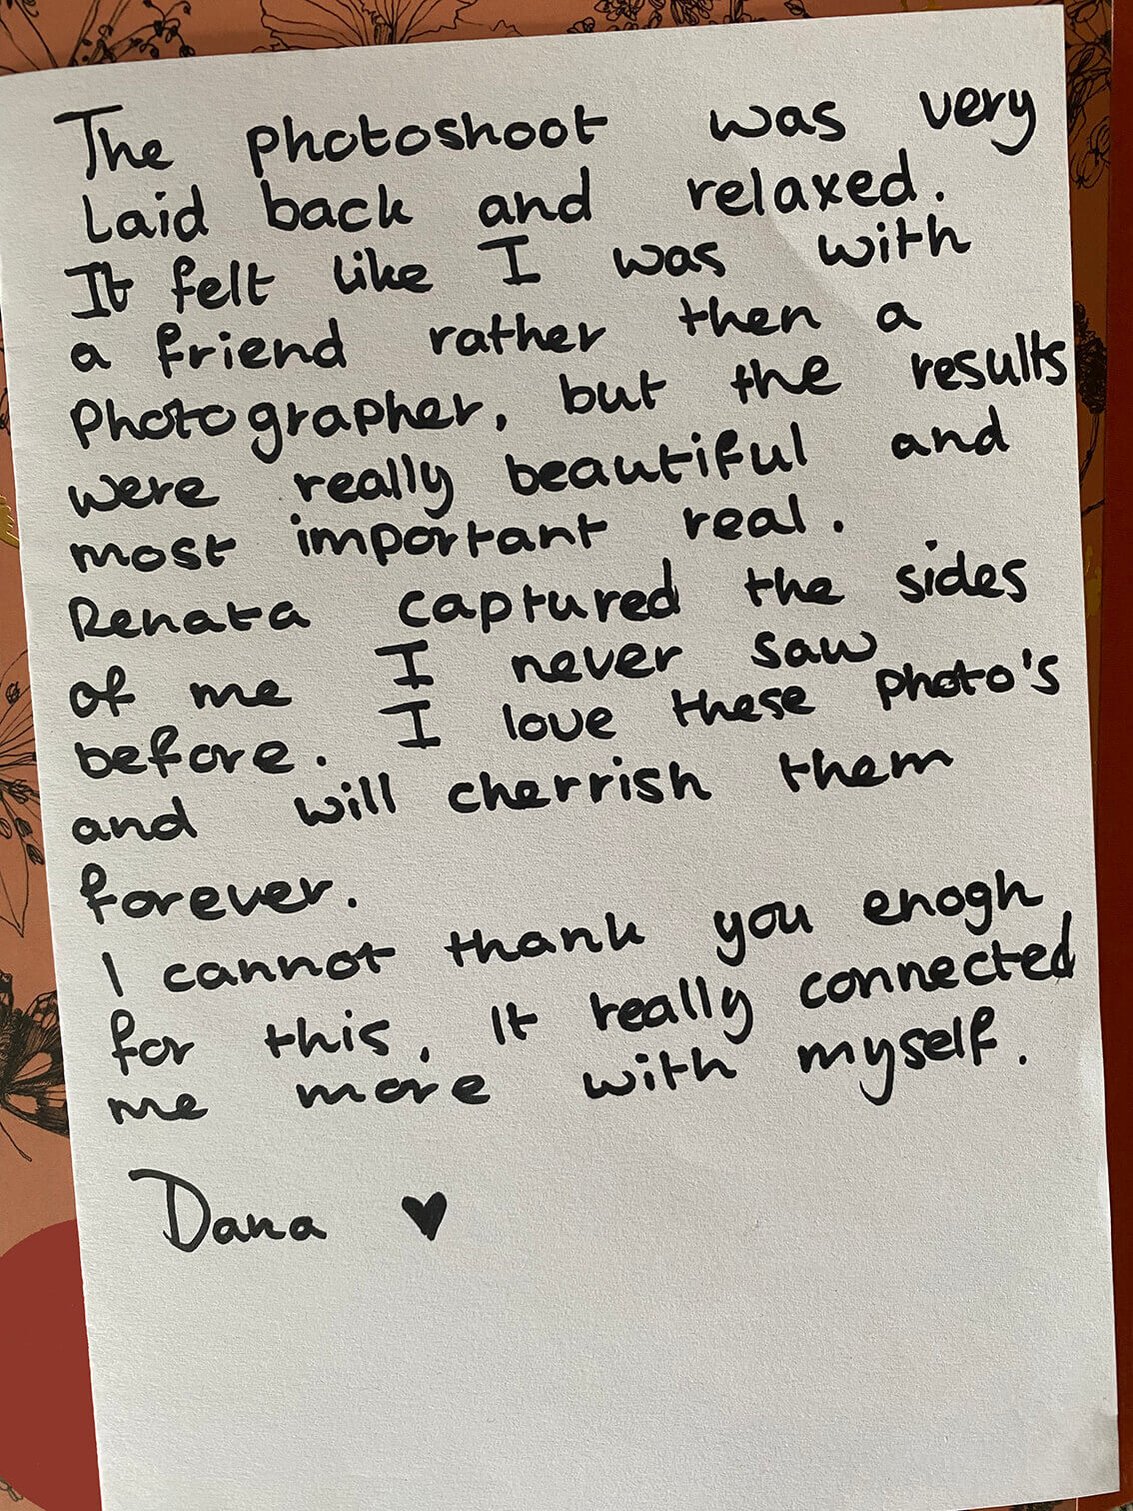 The photoshoot was very
laid back and relaxed.
It felt like I was with
a friend rather then a
photographer, but the results
were really beautiful and
most important real.
Renata captured the sides
of me I never saw
before. I love these photo's
and will cherrish them
forever.
I cannot thank you enogh
for this. It really connected
me more with myself.
Dana ♥